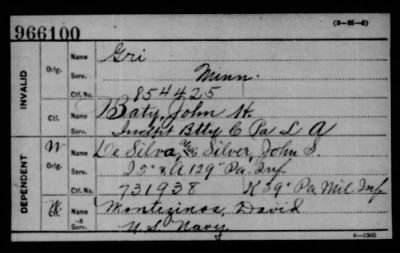 (3-35-d)
966100
INVALID
Orig.
Name
Gri
Serv.
Minn.
Ctf. No.
854425
Ctf.
Name
Baty, John H.
Serv.
Indpt Btty C Pa L A
DEPENDENT
W
Orig.
Name
De Silva, Silver, John S.
Serv.
I 5" & A 129" Pa. Inf
Ctf. No.
731938 H 39" Pa Mil Inf
Ctf.
Name
Montezinos, David
Serv.
U.S. Navy